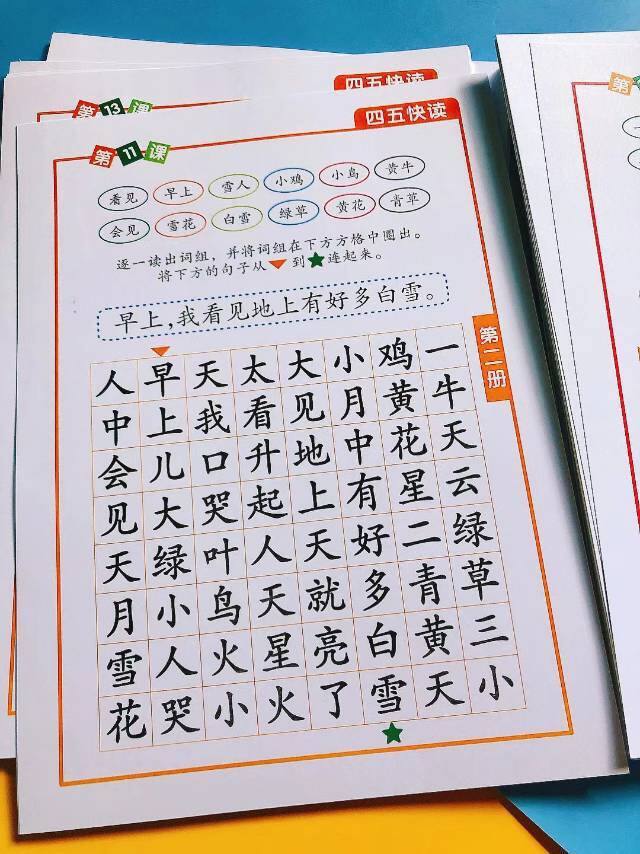 四五快读
第13课
四五快读
第11课
看见 早上 雪人 小鸡 小鸟 黄牛
会见 雪花 白雪 绿草 黄花 青草
逐一读出词组，并将词组在下方方格中圈出。
将下方的句子从▼到★连起来。
早上,我看见地上有好多白雪。
第二册
人早天太大小鸡一
中上我看见月黄牛
会儿口升地中花天
见大哭起上有星云
天绿叶人天好二绿
月小鸟天就多青草
雪人火星亮白黄三
花哭小火了雪天小
第